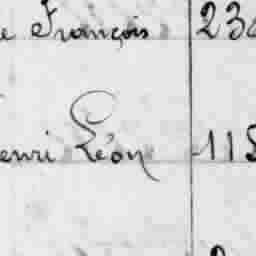 e François 23
enri Léon 115